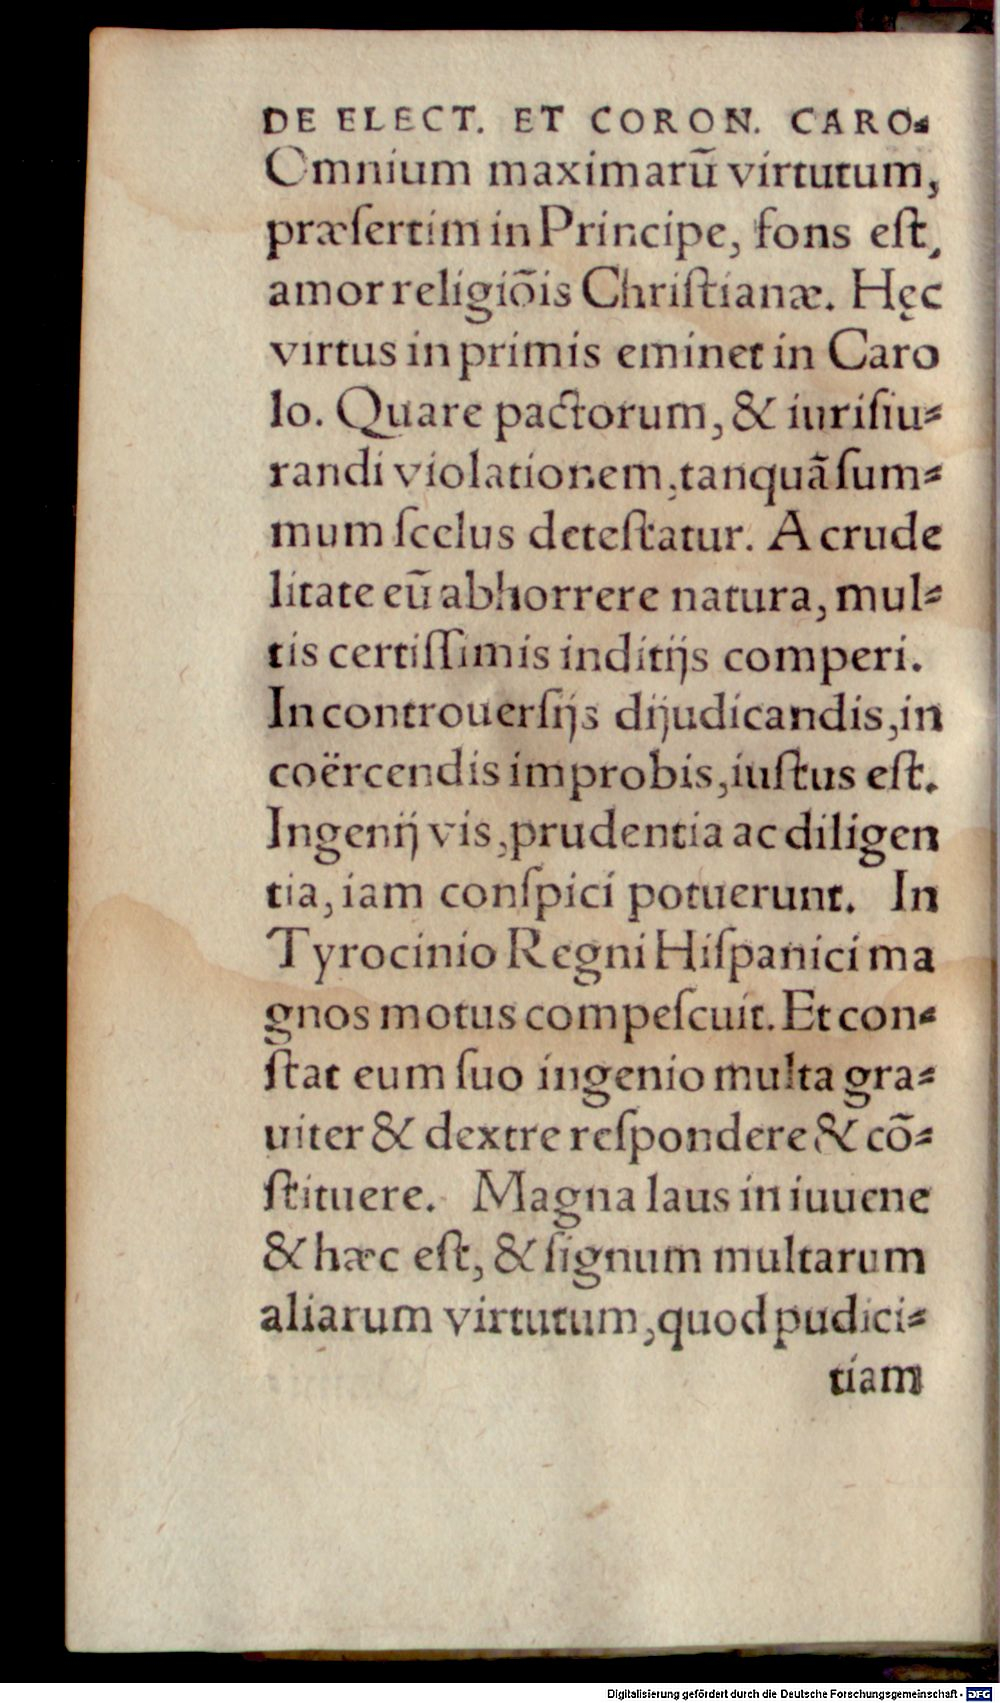 DE ELECT. ET CORON. CARO⸗
Omnium maximarū virtutum,
præſertim in Principe, fons eſt,
amor religiōis Chriſtianæ. Hęc
virtus in primis eminet in Caro
lo. Quare pactorum, & iuriſiu⸗
randi violationem, tanquā ſum⸗
mum ſcelus deteſtatur. A crude
litate eū abhorrere natura, mul⸗
tis certiſſimis inditijs comperi.
In controuerſijs dijudicandis, in
coërcendis improbis, iuſtus eſt.
Ingenij vis, prudentia ac diligen
tia, iam conſpici potuerunt. In
Tyrocinio Regni Hiſpanici ma
gnos motus compeſcuit. Et con⸗
ſtat eum ſuo ingenio multa gra⸗
uiter & dextre reſpondere & cō⸗
ſtituere. Magna laus in iuuene
& hæc eſt, & ſignum multarum
aliarum virtutum, quod pudici⸗
tiam
Digitalisierung gefördert durch die Deutsche Forschungsgemeinschaft - DFG